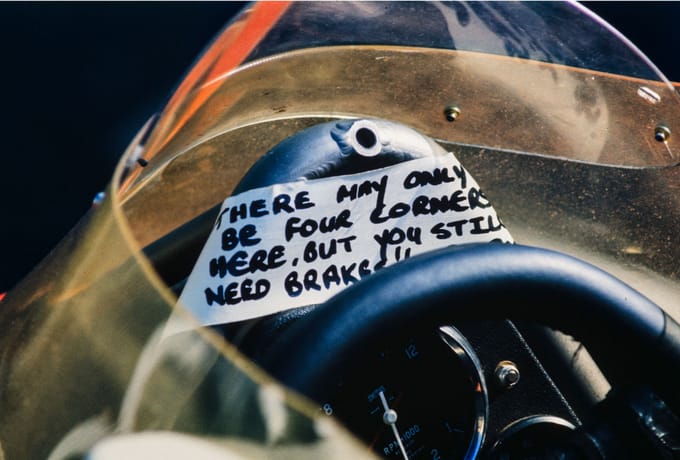 THERE MAY ONLY
BE FOUR CORNERS
HERE, BUT YOU STILL
NEED BRAKES!!
12
8
RPM
1
2